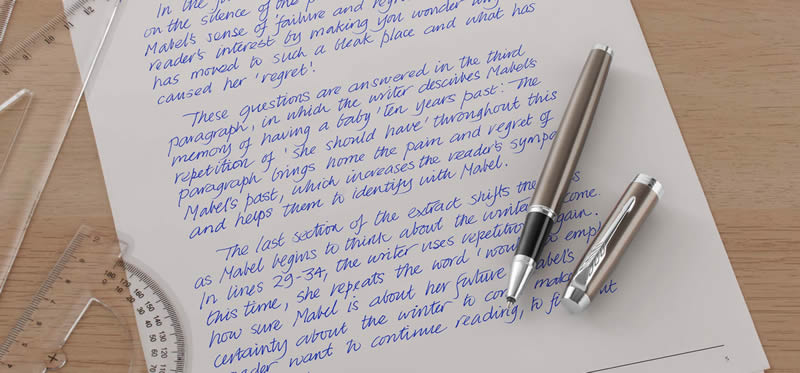 In the
on the silence of the
Mabel's sense of failure and
reader's interest by making you wonder why
has moved to such a bleak place and what has
caused her 'regret'.
These questions are answered in the third
paragraph, in which the writer describes Mabel's
memory of having a baby 'ten years past'. The
repetition of 'she should have' throughout this
paragraph brings home the pain and regret of
Mabel's past, which increases the reader's
and helps them to identify with Mabel.
The last section of the extract shifts the
as Mabel begins to think about the come
In lines 29-34, the writer uses
this time, she repeats the word
how sure Mabel is about her future Mabel's
certainty about the winter to
reader want to continue reading, to
5
180
170
160
150
140
130
120
110
100
90
80
70